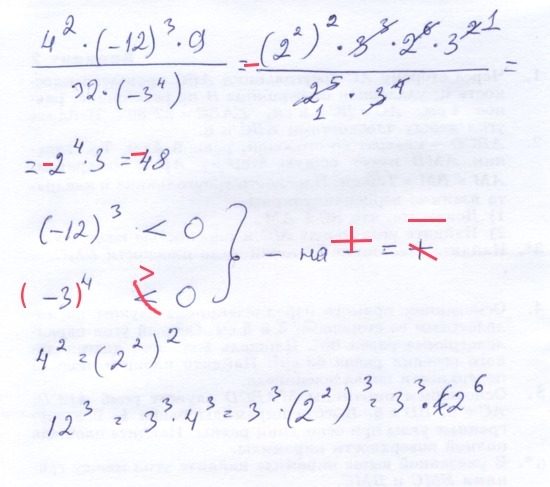 4² · (-12)³ · 9 / 32 · (-3⁴) = - (2²)² · 3³ · 2⁶ · 3² 1 / 2⁵ 1 · 3⁴ =
= - 2⁴ · 3 = - 48
(-12)³ < 0 } - на + = + -
(-3)⁴ < > 0
4² = (2²)²
12³ = 3³ · 4³ = 3³ · (2²)³ = 3³ · 2⁶